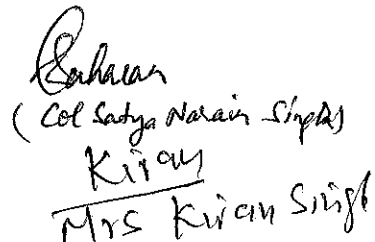 (Col Satya Narain Singh)
Kiran
Mrs Kiran Singh